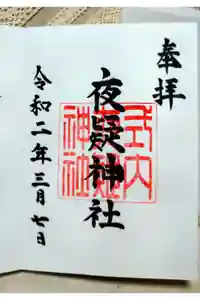 奉拝
夜疑神社
式内
神社
令和二年三月七日